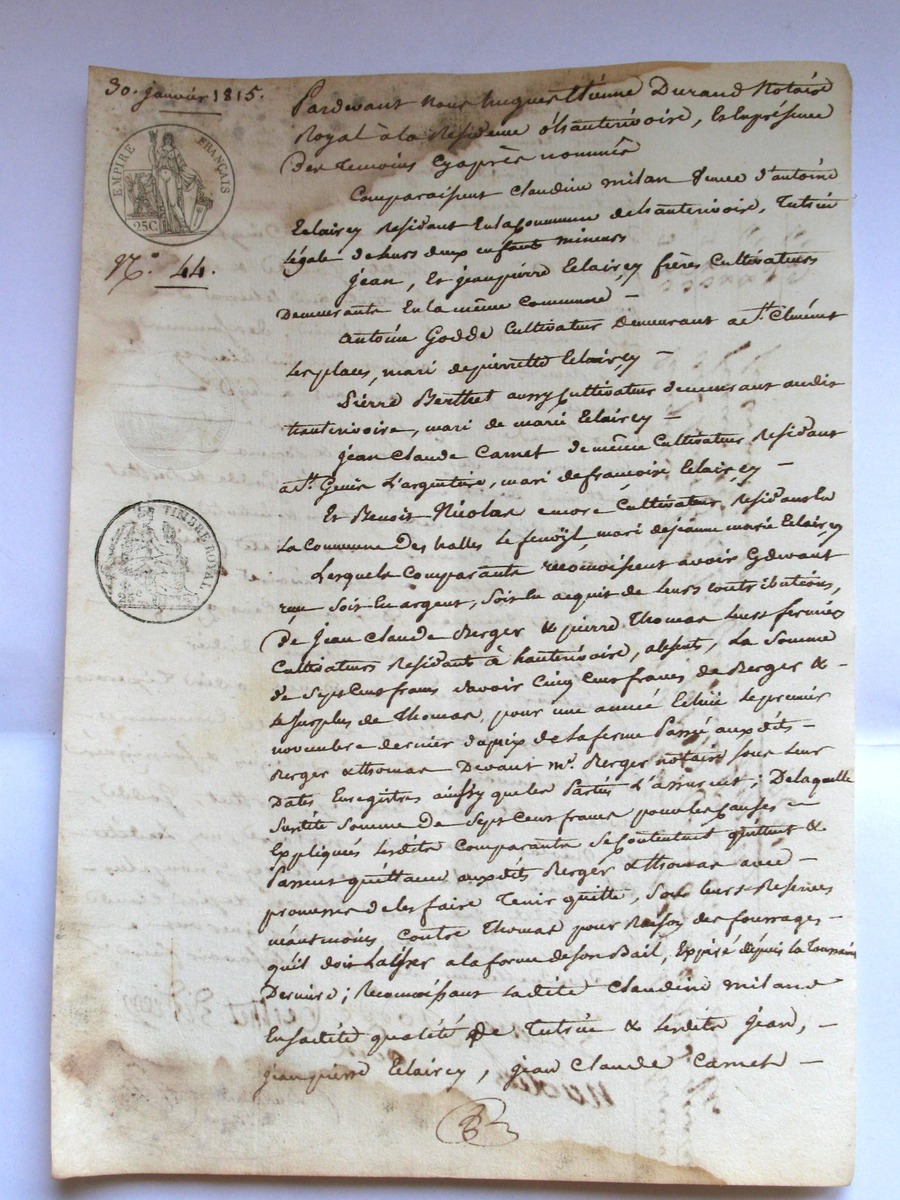 30. janvier 1815.
EMPIRE FRANÇAIS
25C
N.° 44.
TIMBRE ROYAL
25
Pardevant nous hugues Etienne Durand Notaire
Royal à la Residence d'hauterivoire, Et la présence
Des temoins Cyaprès nommés
Comparaissent Claudine milan veuve d'antoine
Eclairey residant En la Commune de hauterivoire, Tutrice
légale de leurs deux enfants mineurs
jean, Et jeanpierre Eclairey frères Cultivateurs
Demeurants En la même Commune —
antoine Godde Cultivateur Demeurant a St. Clément
les places, mari de pierrette Eclairey —
Pierre Berthet aussy Cultivateur demeurant audit
hauterivoire, mari de marie Eclairey —
jean Claude Carnet de même Cultivateur residant
a St. Genis L'argentiere, mari de francoise Eclairey —
Et Benoit Nicolas encore Cultivateur, residant En
La Commune Des halles le fenoÿl, mari de jeanne marie Eclairey
Lesquels Comparants reconnoissent avoir Cydevant
reçu soit En argent, soit En acquit de leurs contributions,
De jean Claude Berger & pierre Thomas leurs fermiers
Cultivateurs Residants à hauterivoire, absents, La Somme
de Sept Cent francs savoir Cinq Cent francs de Berger & —
le surplus de Thomas, pour une année Echue le premier
novembre dernier du prix de la ferme Passée auxdits —
Berger & thomas Devant me. Berger notaire sous leur
Dates Enregistrés ainssy que les Parties L'assurent; De laquelle
susdite Somme De Sept Cent francs pour les Causes —
Expliquées lesdits Comparants se Contentent quittent &
Passent quittance auxdits Berger & thomas avec —
promesse de les faire Tenir quitte, sous leurs Reserves
néantmoins contre Thomas pour Raison des fourrages —
qu'il doit Laisser a la forme de son Bail, Expiré depuis la Toussaint
Derniere; Reconnoissant ladite Claudine miland
En sadite qualité De Tutrice & lesdits jean, —
jeanpierre Eclairey, jean Claude Carnet —